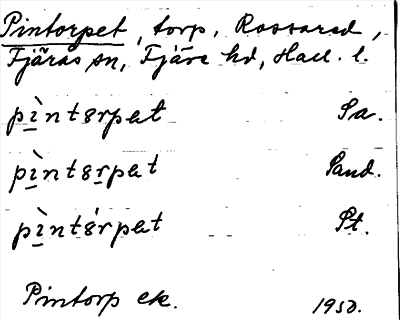 Pintorpet, torp, Rossared,
Fjärås sn, Fjäre hd, Hall. l.
pìntərpət Sa.
pìntərpət Sand.
pìntərpət St.
Pintorp ek. 1950.